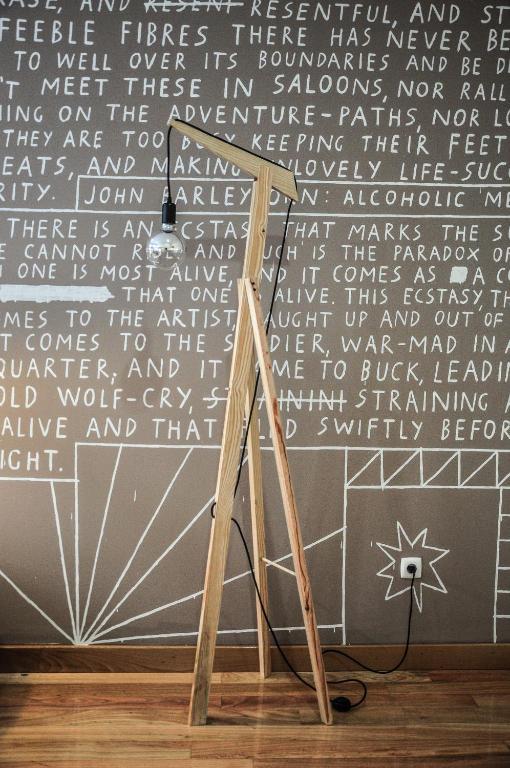 AND RESENT RESENTFUL, AND
FEEBLE FIBRES THERE HAS NEVER
TO WELL OVER ITS BOUNDARIES AND BE
MEET THESE IN SALOONS, NOR
ON THE ADVENTURE-PATHS, NOR
THEY ARE TOO BUSY KEEPING THEIR FEET
AND MAKING UNLOVELY LIFE-SUC
RITY. JOHN BARLEYCORN: ALCOHOLIC ME
THERE IS AN ECSTASY THAT MARKS THE
CANNOT AND SUCH IS THE PARADOX OF
ONE IS MOST ALIVE, AND IT COMES AS A
THAT ONE ALIVE. THIS ECSTASY,
MES TO THE ARTIST, CAUGHT UP AND OUT OF
T COMES TO THE SOLDIER, WAR-MAD IN A
QUARTER, AND IT CAME TO BUCK, LEADIN
OLD WOLF-CRY, STRAINING
ALIVE AND THAT FLED SWIFTLY BEFOR
IGHT.